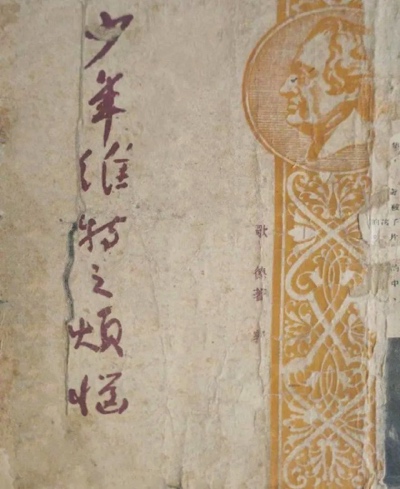 少年維特之煩惱
歌德著